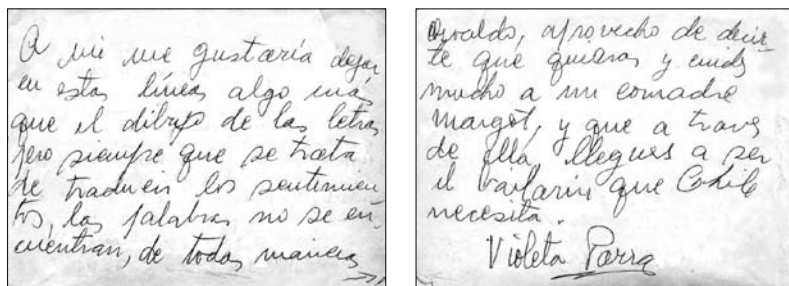 A mi me gustaría dejar
en estas líneas algo más
que el dibujo de las letras
pero siempre que se trata
de traducir los sentimien
tos, las palabras no se en-
cuentran, de todas maneras
Osvaldo, aprovecho de decir
te que quieras y cuides
mucho a mi comadre
Margot, y que a traves
de ella llegues a ser
el bailarin que Chile
necesita.
Violeta Parra